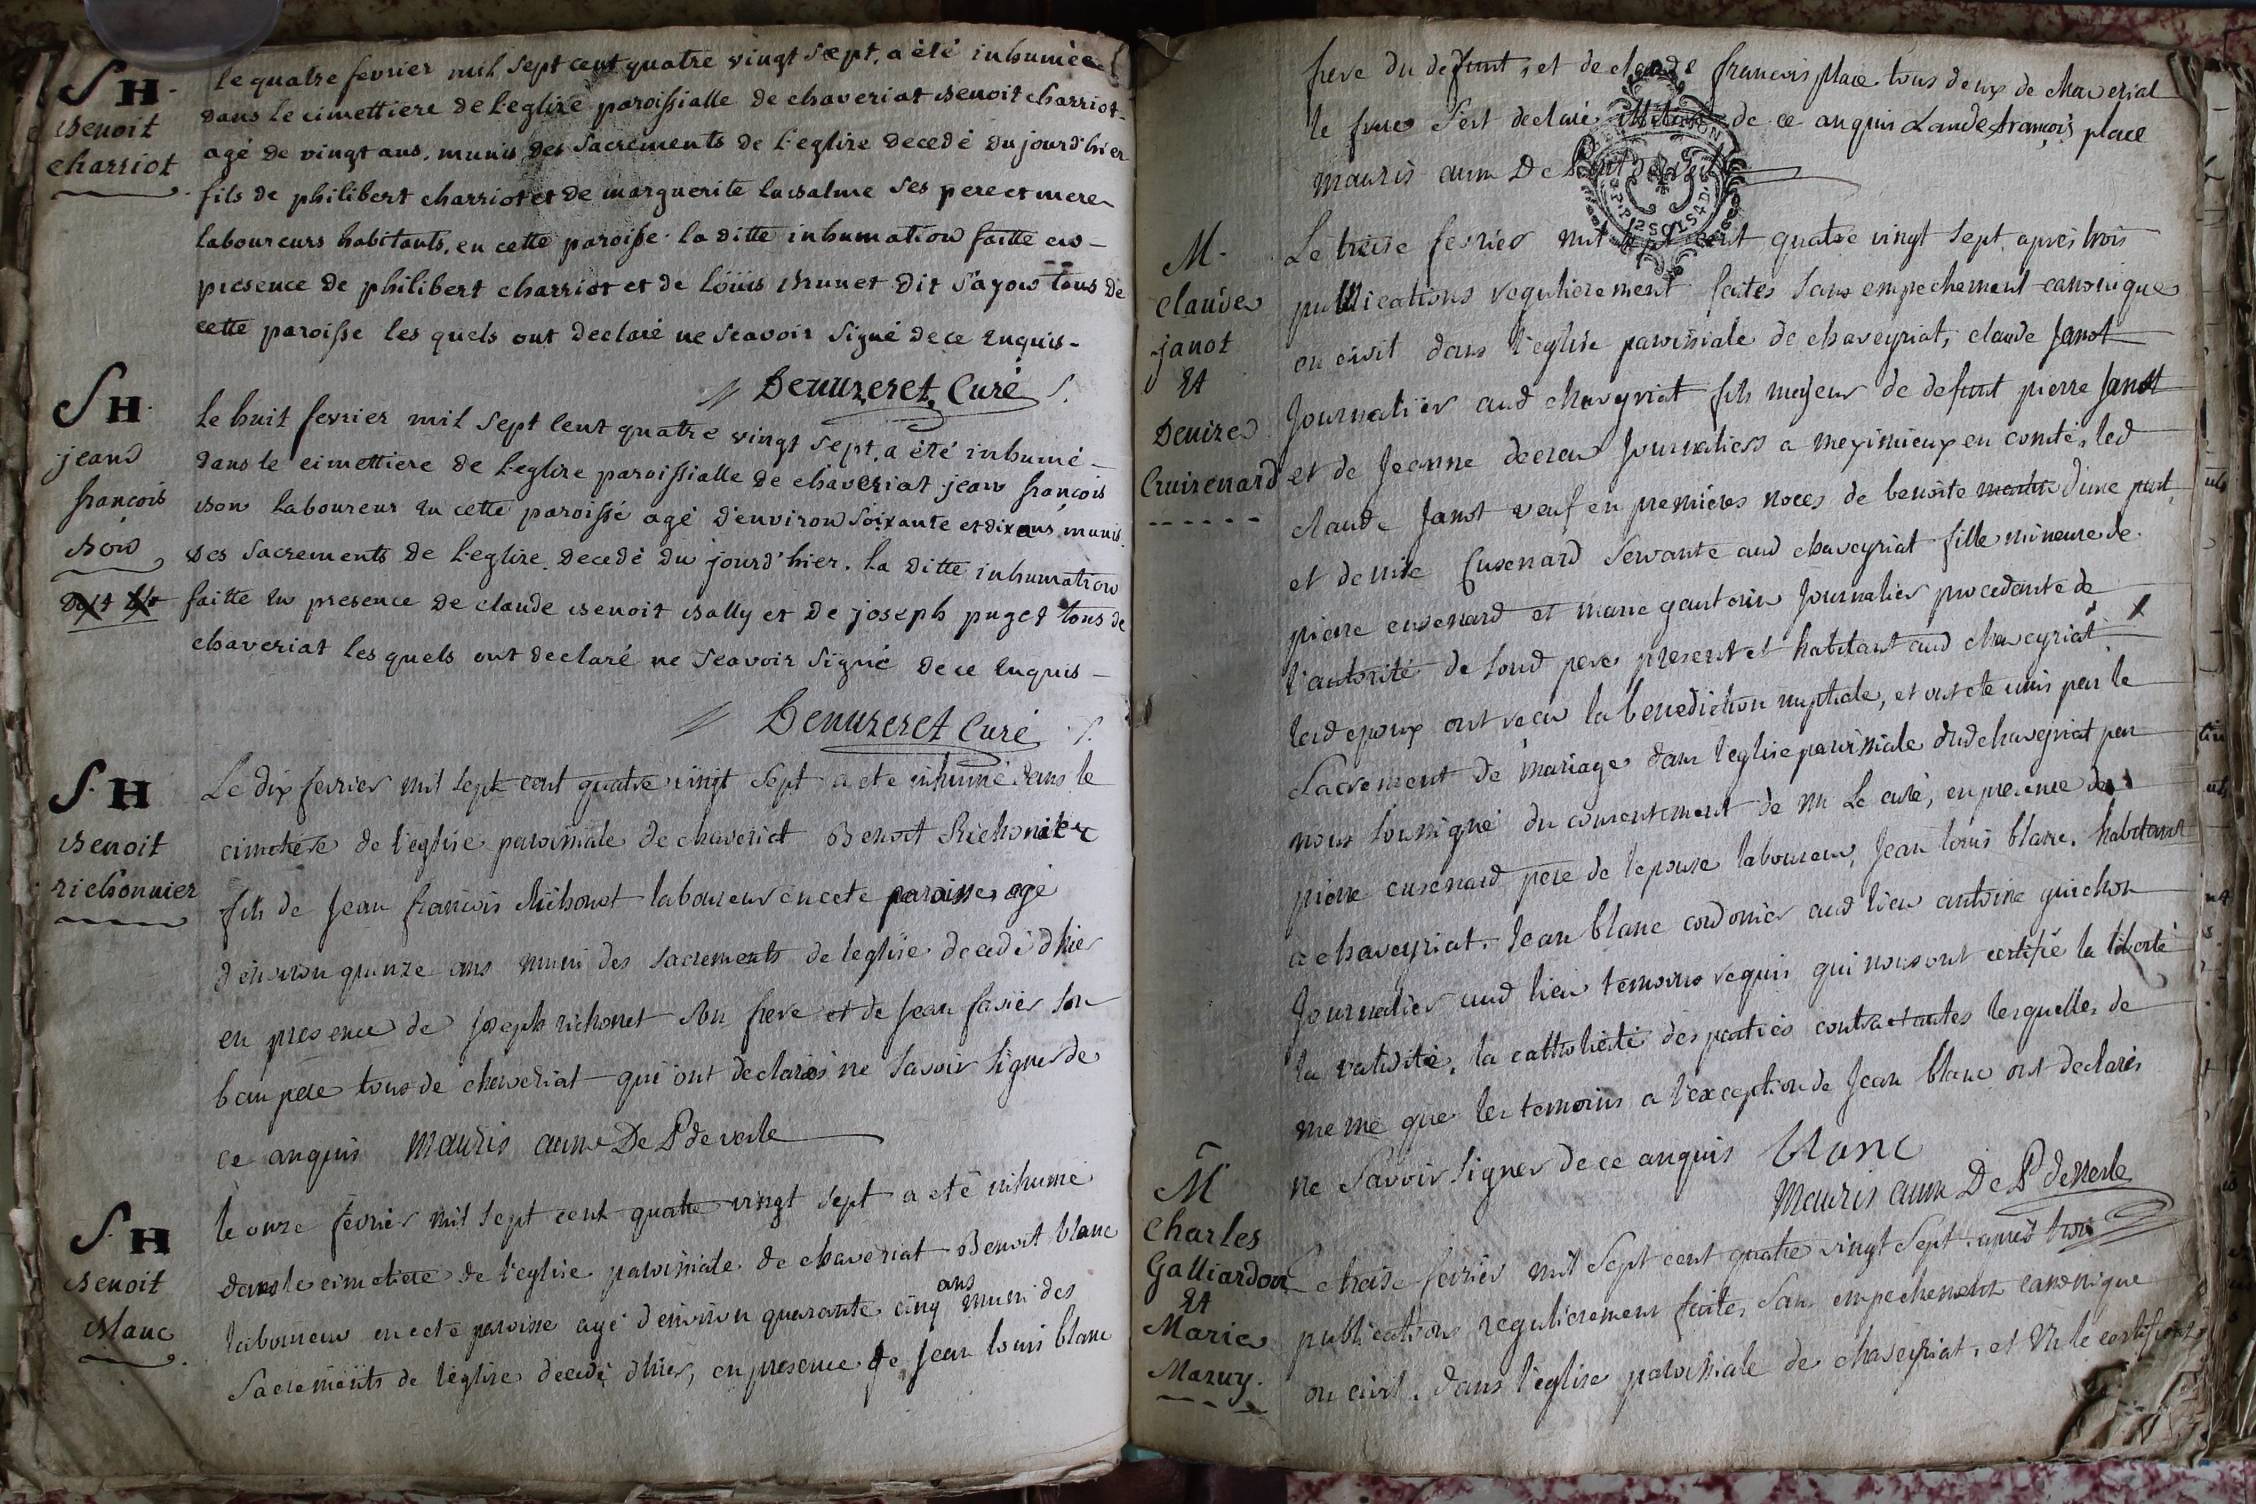 S H.
Benoit
charriot
le quatre fevrier mil sept cent quatre vingt sept. a été inhumée
dans le cimettiere de l'eglise paroissialle de chaveriat Benoit charriot
agé de vingt ans. munis des sacrements de l'eglise decedé du jourd'hier
fils de philibert charriot et de marguerite labalme ses pere et mere
laboureurs habitants. en cette paroisse. la ditte inhumation faitte en
presence de philibert charriot et de loüis Brunet dit Sayou tous de
cette paroisse les quels ont declaré ne scavoir signé de ce enquis-
Benuzeret, Curé
S H.
jean
françois
Bon
le huit fevrier mil sept cent quatre vingt sept. a été inhumé
dans le cimettiere de l'eglise paroissialle de chaveriat jean françois
Bon laboureur en cette paroisse agé d'environ soixante et dix ans, munis
des sacrements de l'eglise. decedé du jourd'hier. la ditte inhumation
faitte en presence de claude Benoit Bally et de joseph puget tous de
chaveriat les quels ont declaré ne scavoir signé de ce enquis-
Benuzeret Curé
S. H
Benoit
richonnier
Le dix fevrier mil sept cent quatre vingt sept a ete inhumé dans le
cimetiere de l'eglise paroissiale de chaveriat Benoit Richonier
fils de Jean francois Richonet laboureur en cete paroisse, agé
d'environ quinze ans muni des sacrements de l'eglise decedé d'hier
en presence de joseph richonet son frere et de Jean favier son
beau pere tous de chaveriat qui ont declarés ne savoir signer de
ce anquis mauris aum De P de vesle
S. H
Benoit
Blanc
le onze fevrier mil sept cent quatre vingt sept a eté inhumé
dans le cimetiere de l'eglise paroissiale de chaveriat Benoit blanc
laboureur en cete paroisse agé d'environ quarante cinq ans muni des
sacrements de l'eglise decedé d'hier, en presence de Jean louis blanc
frere du defunt, et de claude francois place tous deux de chaveriat
le frere s'est declaré illiteré de ce anquis claude françois place
mauris aum De Pont de vesle
M.
Claude
janot
Et
Denize
Cruisenard
Le treise fevrier mil sept cent quatre vingt sept, apres trois
publications regulierement faites sans empechement canonique
ou civil dans l'eglise paroissiale de chaveyriat, claude Janot
Journalier aud chaveyriat fils majeur de defunt pierre Janot
et de Jeanne decreu Journaliers a meximieux en comté, led
claude Janot veuf en premieres noces de benoite d'une part,
et denise Cusenard servante aud chaveyriat fille mineure de
pierre cusenard et marie gautorin Journalier procedante de
l'autorité de soud pere present et habitant aud chaveyriat
lesd epoux ont recu la benediction nuptiale, et ont ete unis par le
sacrement de mariage dans l'eglise paroissiale dud chaveyriat par
nous soussigné du consentement de mr Le curé, en presence de
pierre cusenard pere de l'epouse laboureur, Jean louis blanc. habitant
a chaveyriat. Jean blanc cordonier aud lieu antoine guichon
Journalier aud lieu temoins requis qui nous ont certifié la liberté
la validité, la catholicité des parties contractantes lesquelles de
meme que les temoins a l'exception de Jean blanc ont declarés
ne savoir signer de ce anquis blanc
mauris aum De P de vesle
M
Charles
Galliardon
Et
Marie
Mazuy.
Le treise fevrier mil sept cent quatre vingt sept. apres trois
publications regulierement faites, sans empechement canonique
ou civil. dans l'eglise paroissiale de chaveyriat, et vu le certificat